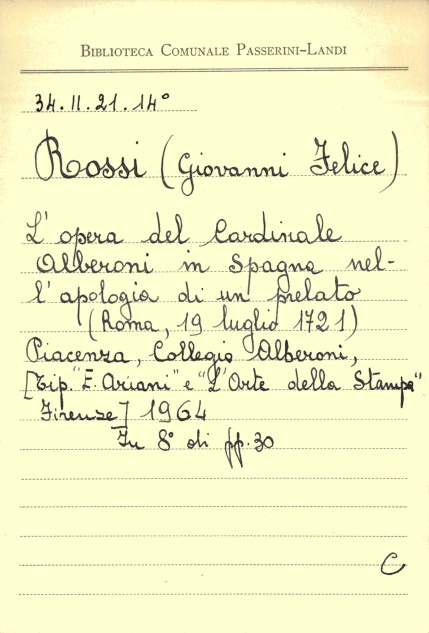 BIBLIOTECA COMUNALE PASSERINI-LANDI
34.II.21.14°
Rossi (Giovanni Felice)
L'opera del Cardinale
Alberoni in Spagna nel-
l'apologia di un prelato
(Roma, 19 luglio 1721)
Piacenza, Collegio Alberoni,
[Tip. "E. Ariani" e "L'Arte della Stampa"
Firenze] 1964
In 8° di pp. 30
C